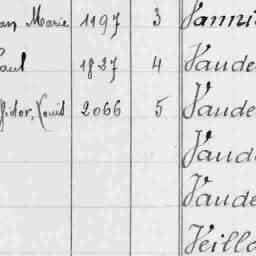 an Marie 1197 3 Vanni
Paul 1827 4 Vande
sidor, Louis 2066 5 Vande
Vande
Vande
Veill